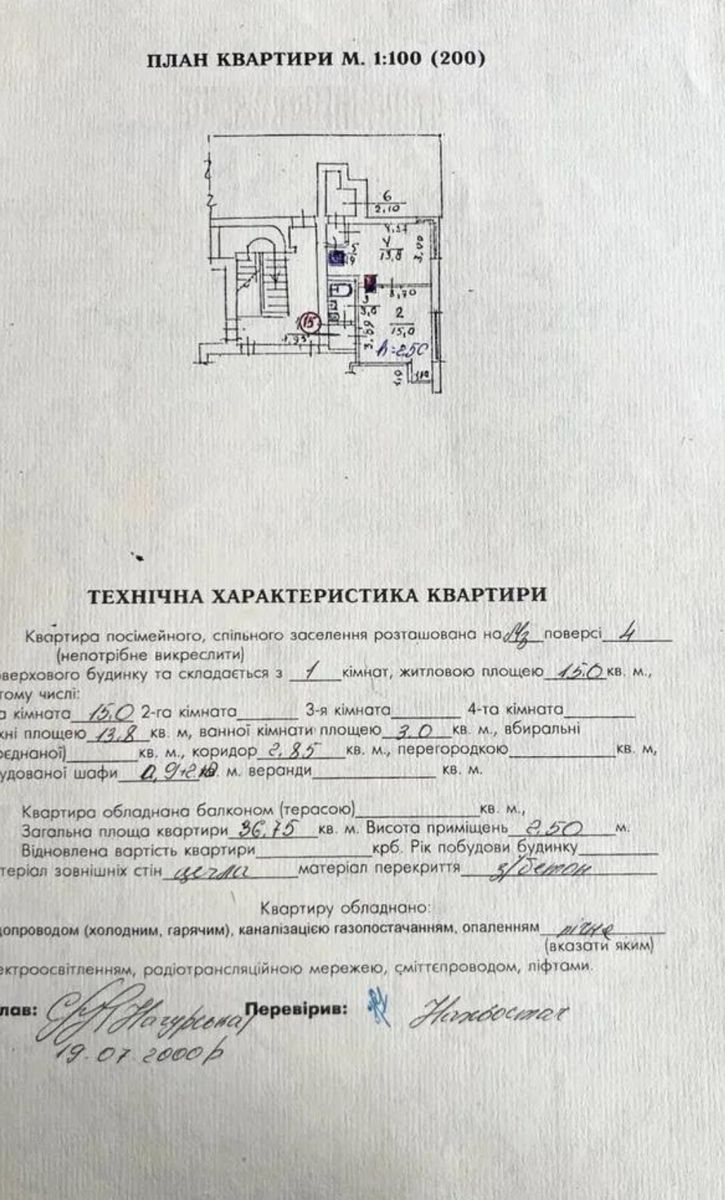 ПЛАН КВАРТИРИ М. 1:100 (200)
6
2.10
4.57
5
4
13,8
3,00
3,70
3
3,0
2
15,0
3,69
15
1,95
h=2,50
1,0
ТЕХНІЧНА ХАРАКТЕРИСТИКА КВАРТИРИ
Квартира посімейного, спільного заселення розташована на поверсі 4
(непотрібне викреслити)
оверхового будинку та складається з 1 кімнат, житловою площею 15.0 кв. м.,
тому числі:
а кімната 15,0 2-га кімната 3-я кімната 4-та кімната
хні площею 13,8 кв. м, ванної кімнати площею 3.0 кв. м., вбиральні
оєднаної) кв. м., коридор 2,85 кв. м., перегородкою кв. м,
удованої шафи м. веранди кв. м.
Квартира обладнана балконом (терасою) кв. м.,
Загальна площа квартири 36,75 кв. м. Висота приміщень 2,50 м.
Відновлена вартість квартири крб. Рік побудови будинку
теріал зовнішніх стін цегла матеріал перекриття з/бетон
Квартиру обладнано:
допроводом (холодним, гарячим), каналізацією газопостачанням, опаленням пічне
(вказати яким)
ектроосвітленням, радіотрансляційною мережею, сміттєпроводом, ліфтами.
лав: Нагурська Перевірив: Нахвостач
19.07 2000р